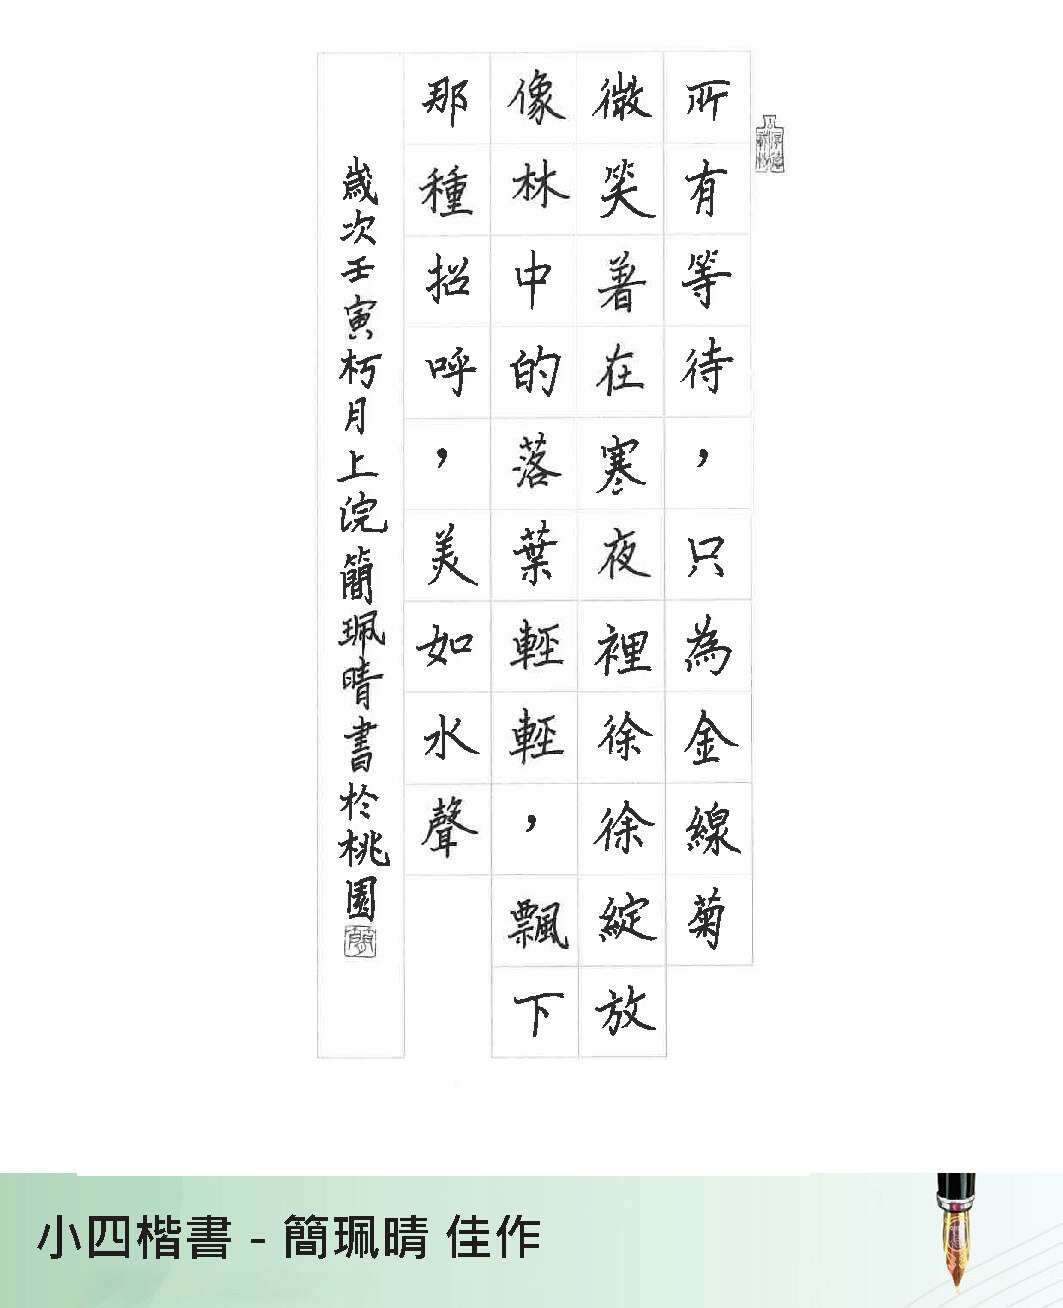 所有等待，只為金線菊
微笑著在寒夜裡徐徐綻放
像林中的落葉輕輕，飄下
那種招呼，美如水聲
歲次壬寅杇月上浣簡珮晴書於桃園
簡
小四楷書 - 簡珮晴 佳作